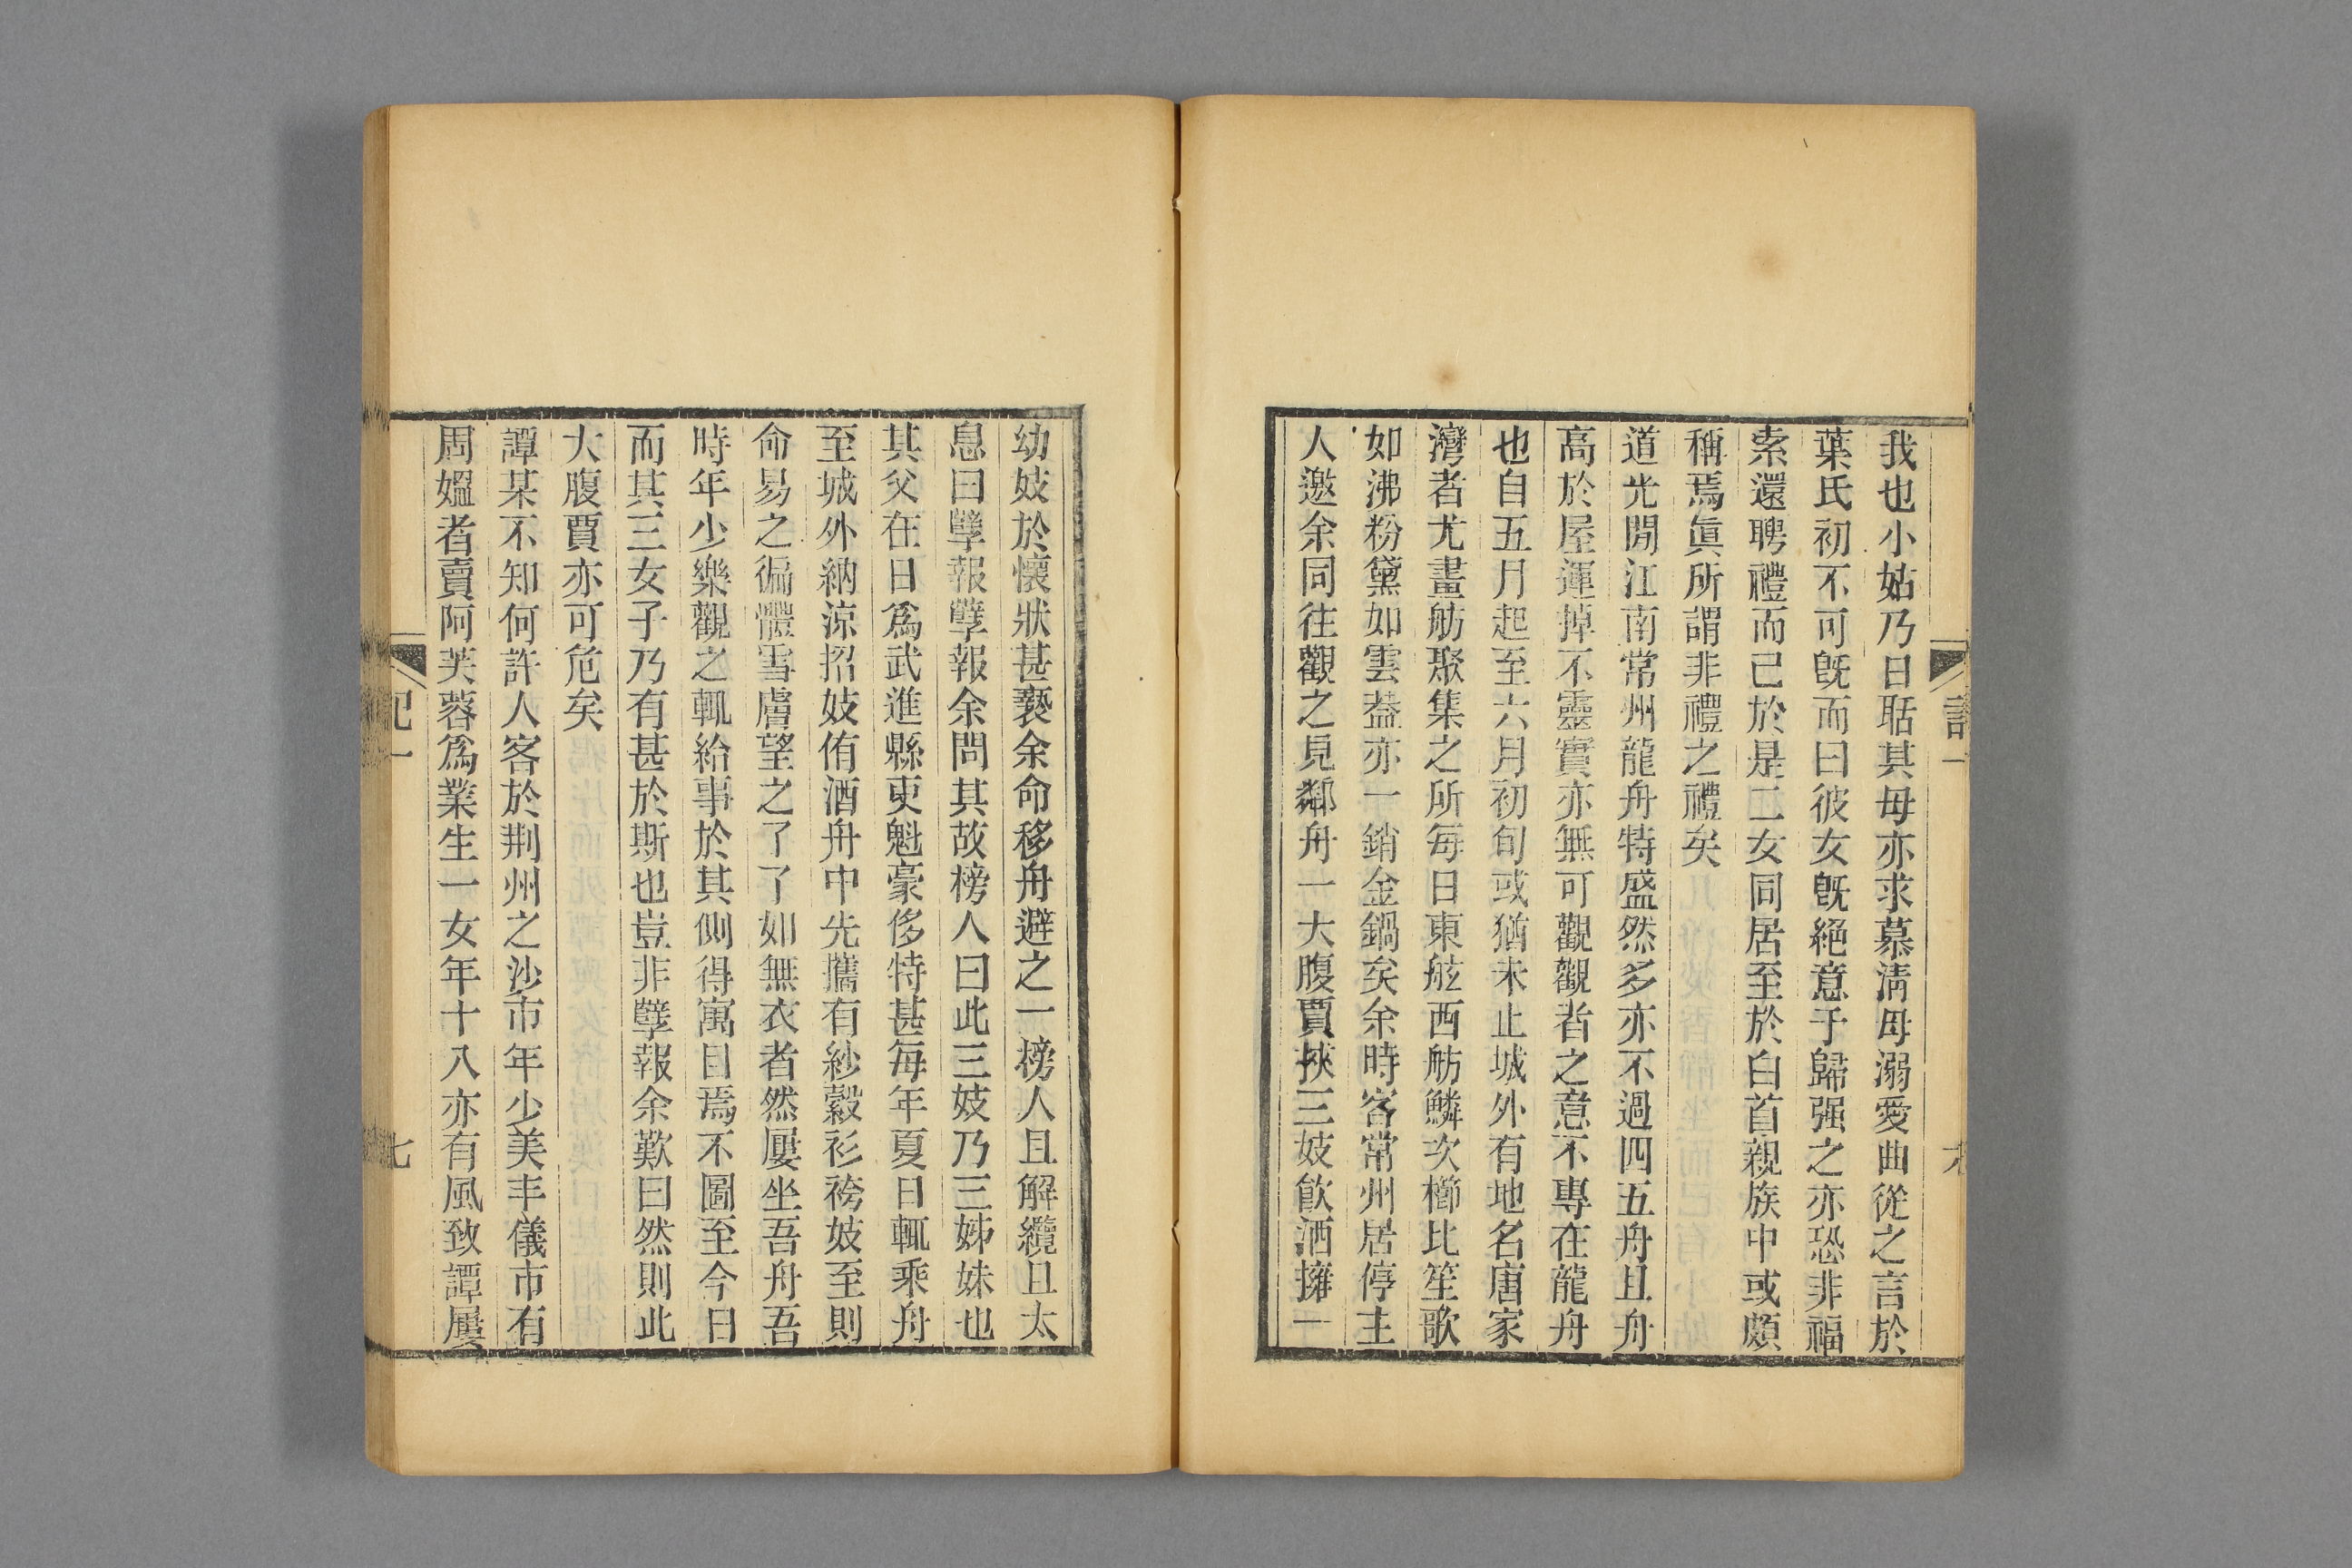 我也小姑乃日聒其母亦求慕淸母溺愛曲從之言於
葉氏初不可旣而曰彼女旣絕意于歸强之亦恐非福
索還聘禮而已於是二女同居至於白首親族中或頗
稱焉眞所謂非禮之禮矣
道光閒江南常州龍舟特盛然多亦不過四五舟且舟
高於屋運掉不靈實亦無可觀觀者之意不專在龍舟
也自五月起至六月初旬或猶未止城外有地名唐家
灣者尤畫舫聚集之所每日東舷西舫鱗次櫛比笙歌
如沸粉黛如雲葢亦一銷金鍋矣余時客常州居停主
人邀余同往觀之見鄰舟一大腹賈挾三妓飮酒擁一
幼妓於懷狀甚褻余命移舟避之一榜人且解纜且太
息曰孽報孽報余問其故榜人曰此三妓乃三姊妹也
其父在日爲武進縣吏魁豪侈特甚每年夏日輒乘舟
至城外納涼招妓侑酒舟中先攜有紗縠衫袴妓至則
命易之徧體雪膚望之了了如無衣者然屢坐吾舟吾
時年少樂觀之輒給事於其側得寓目焉不圖至今日
而其三女子乃有甚於斯也豈非孽報余歎曰然則此
大腹賈亦可危矣
譚某不知何許人客於荆州之沙市年少美丰儀市有
周媼者賣阿芙蓉爲業生一女年十八亦有風致譚屢
記一
七